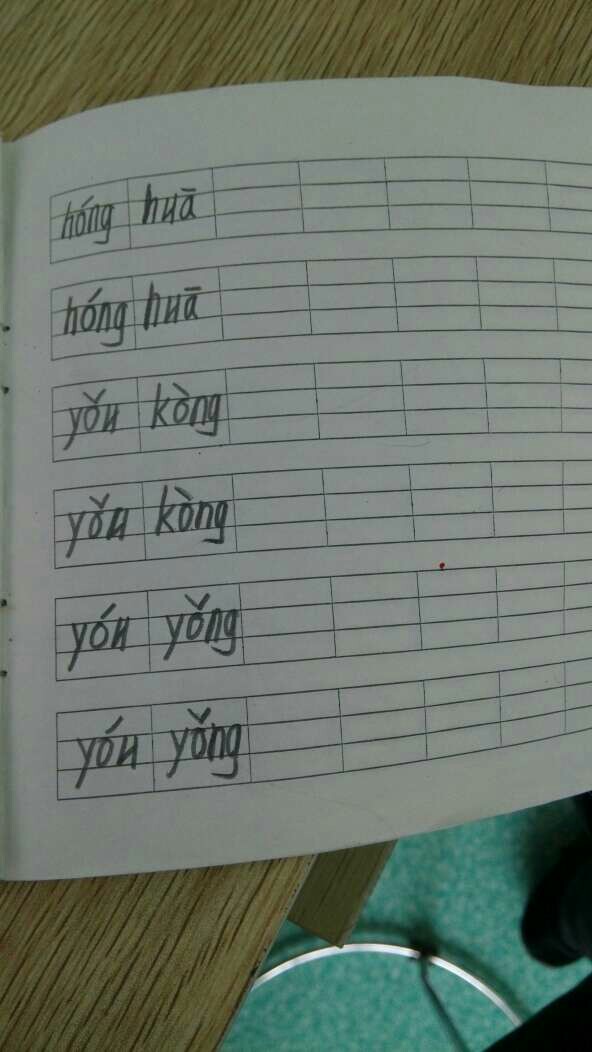 hóng huā
hóng huā
yǒu kòng
yǒu kòng
yóu yǒng
yóu yǒng